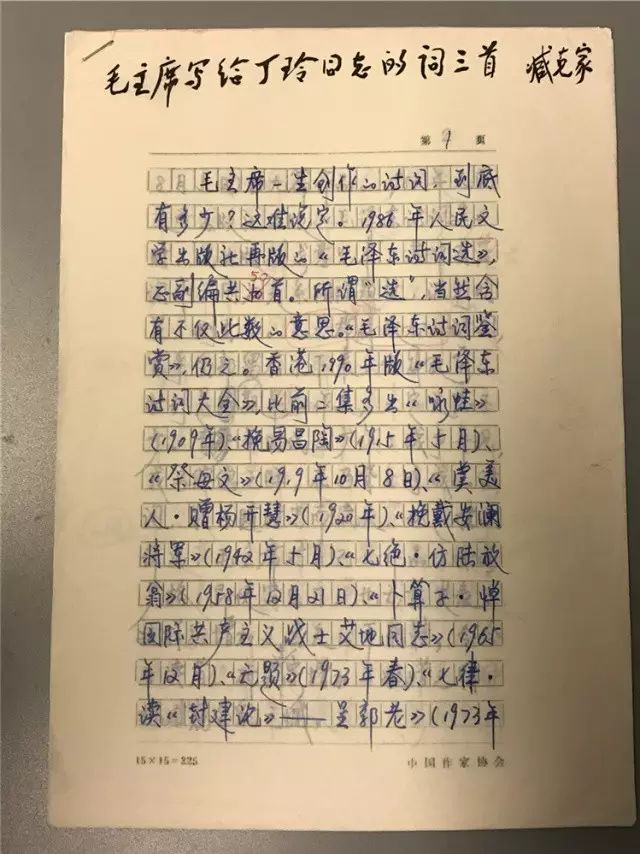 毛主席写给丁玲同志的词三首 臧克家
第 1 页
毛主席一生创作的诗词,到底
有多少?这难说定。1986年人民文
学出版社再版的《毛泽东诗词选》,
正副编共50首。所谓“选”,当然含
有不仅此数的意思。《毛泽东诗词鉴
赏》,仍之。香港1990年版《毛泽东
诗词大全》,比前二集多出《咏蛙》
(1909年)、《挽易昌陶》(1915年5月)、
《祭母文》(1919年10月8日)、《虞美
人·赠杨开慧》(1920年)、《挽戴安澜
将军》(1942年5月)、《七绝·仿陆放
翁》(1958年12月21日)、《卜算子·悼
国际共产主义战士艾地同志》(1965
年12月)、《无题》(1973年春)、《七律·
读《封建论》——呈郭老》(1973年
15×15=225
中国作家协会